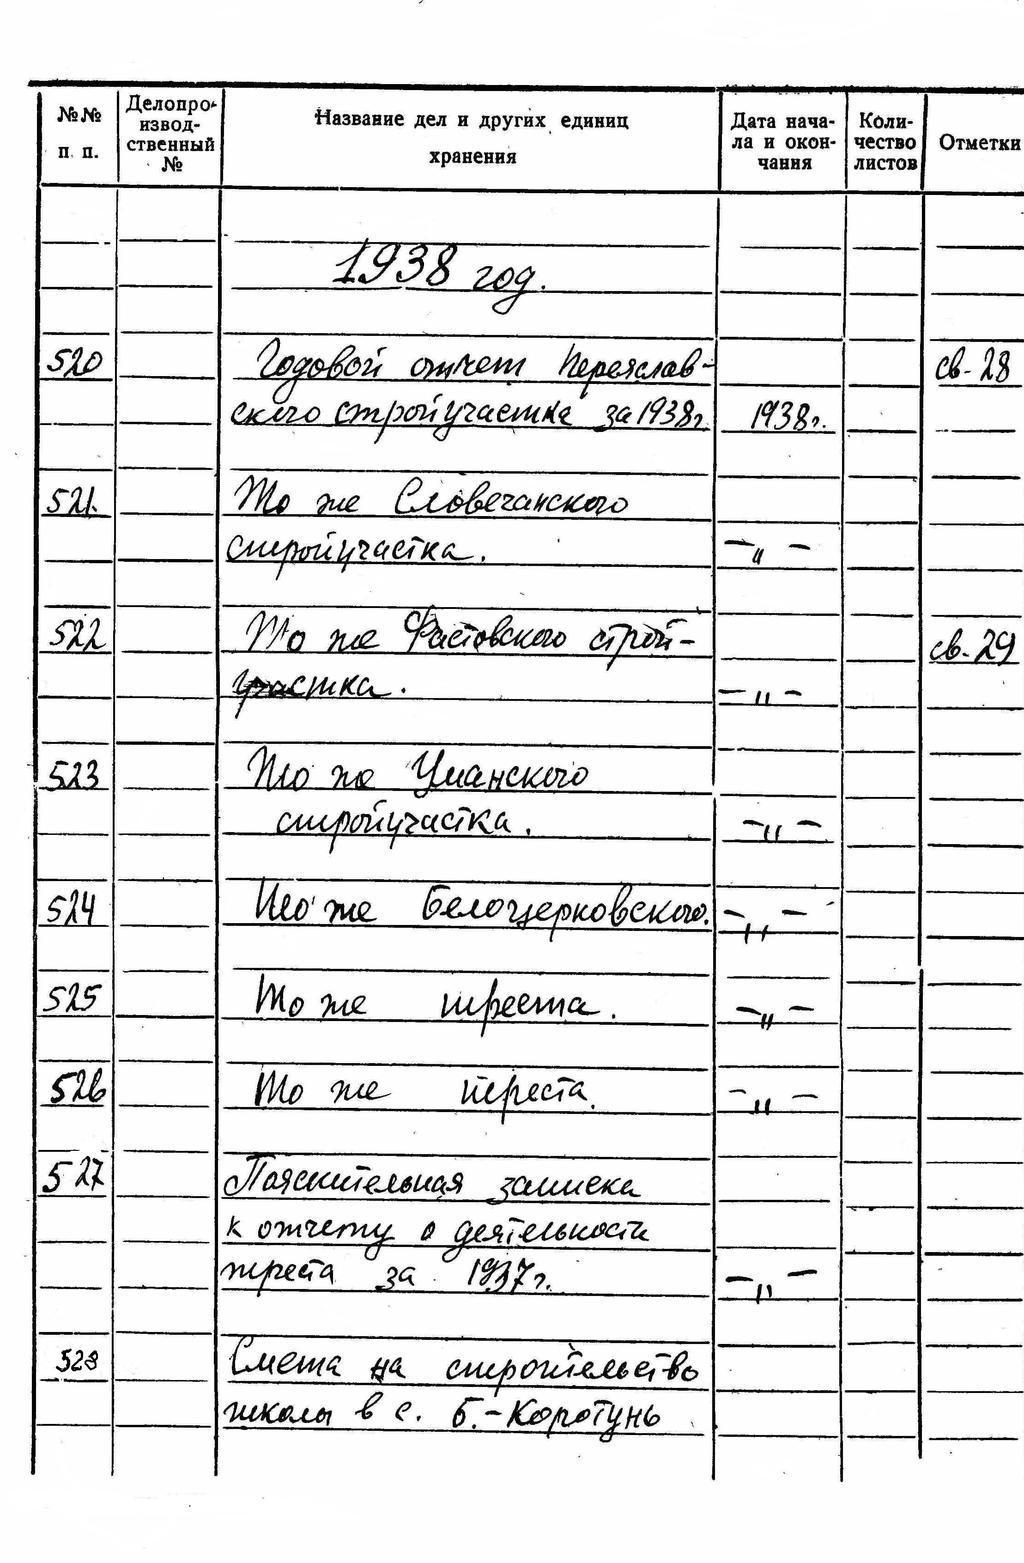 №№ п. п. Делопроизвод-ственный № Название дел и других единиц хранения Дата нача-ла и окон-чания Коли-чество листов Отметки
1938 год.
520 Годовой отчет Переяслав- св-28
ского стройучастка за 1938г. 1938г.
521. То же Словечанского
стройучастка. -"-
522 То же Фастовского строй- св-29
участка. -"-
523 То же Уманского
стройучастка. -"-
524 То же Белоцерковского. -"-
525 То же треста. -"-
526 То же треста. -"-
527 Пояснительная записка
к отчету о деятельности
треста за 1937г. -"-
528 Смета на строительство
школы в с. Б.-Коротунь